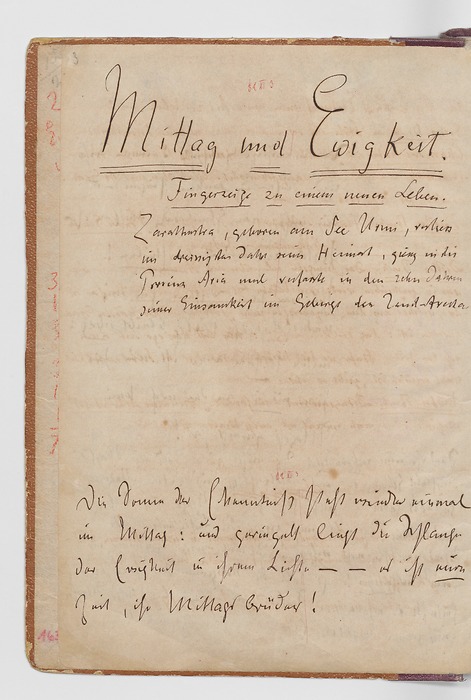 Mittag und Ewigkeit.
Fingerzeige zu einem neuen Leben.
Zarathustra, geboren am See Urmi, verliess
im dreissigsten Jahre seine Heimat, gieng in die
Provinz Aria und verfasste in den zehn Jahren
seiner Einsamkeit im Gebirge den Zend-Avesta
Die Sonne der Erkenntniß steht wieder einmal
im Mittag: und geringelt liegt die Schlange
der Ewigkeit in ihrem Lichte — — es ist eure
Zeit, ihr Mittagsbrüder!
163